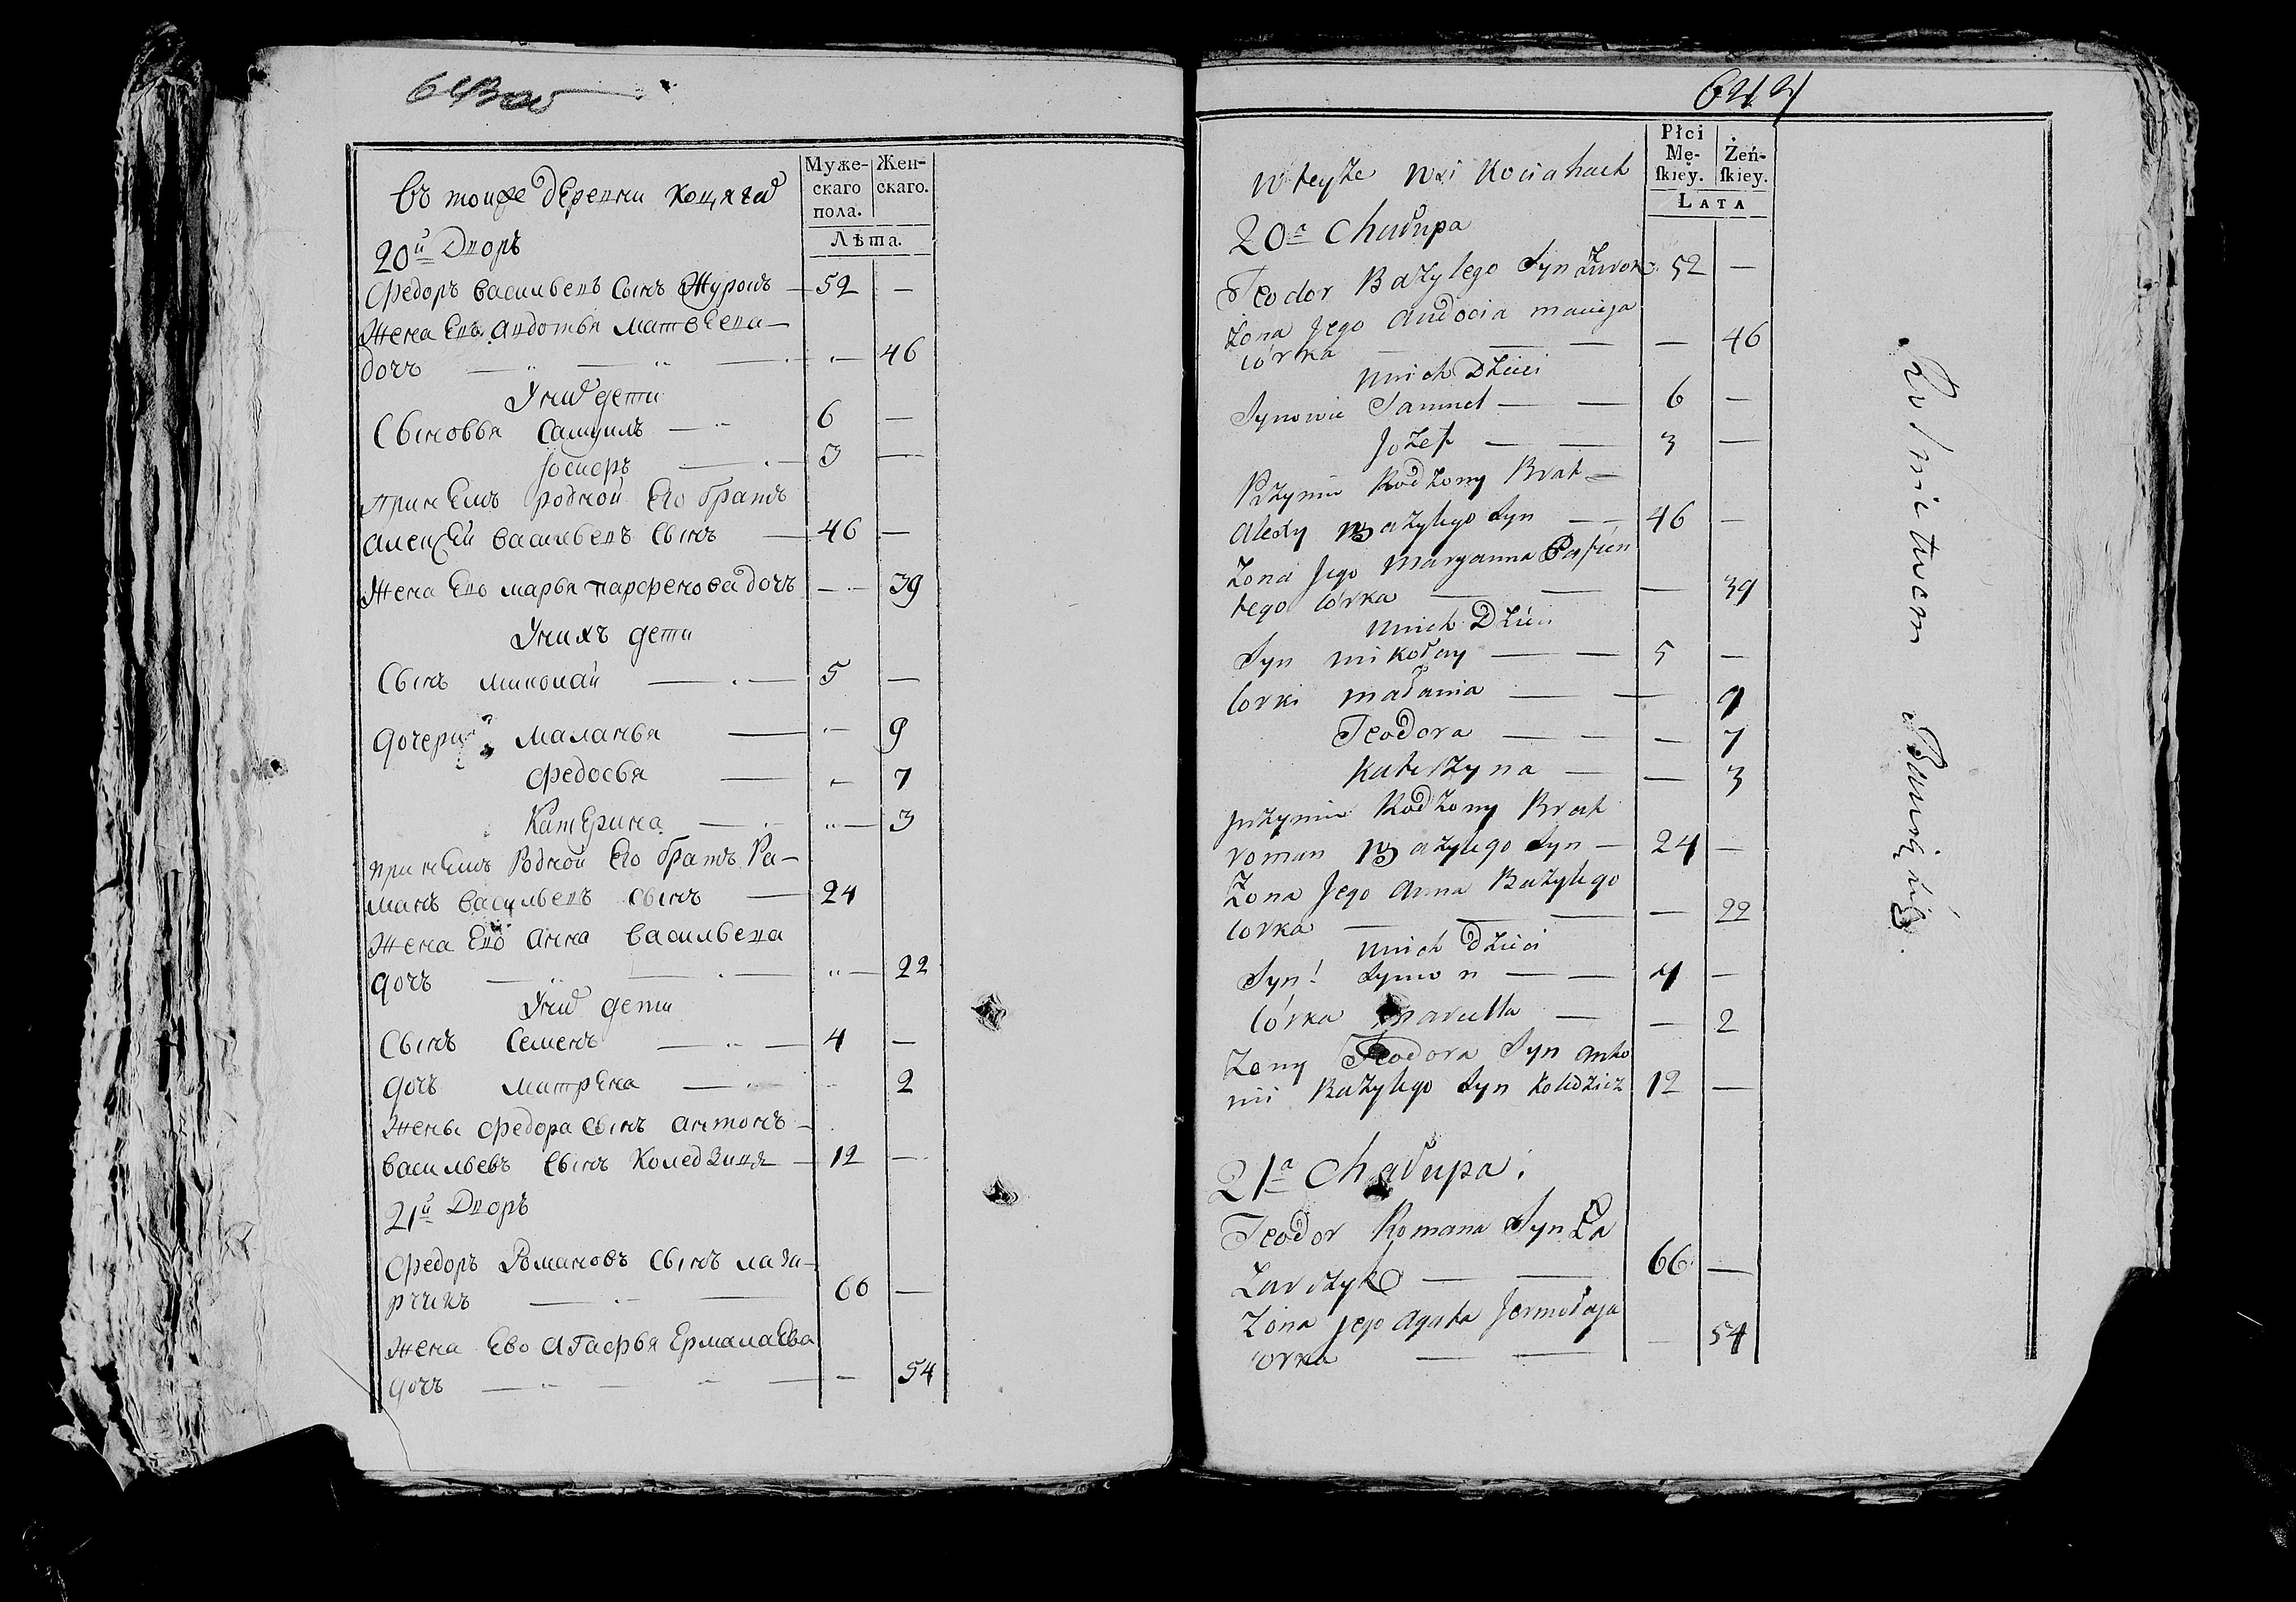 Въ тойже деревни Коцягах
Муже-
скаго
пола.
Жен-
скаго.
Лѣта.
20й Дворъ
Федоръ Васильевъ сынъ Журокъ — 52 —
Жена Ево Авдотья Матвеева —
дочь — — 46
У них дети
Сыновья Самуилъ — 6 —
Иосифъ — 3 —
При нѐмъ родной Его братъ
Алексей Васильевъ сынъ — 46 —
Жена Ево Марья Парфенова дочь — 39
У нихъ дети
Сынъ Миколай — 5 —
Дочери Маланья — — 9
Федосья — — 7
Катерина — — 3
При нѐмъ Родной Его братъ Ра-
манъ Васильевъ сынъ — 24
Жена Ево Анна Васильева
дочь — — 22
У них дети
Сынъ Семенъ — 4 —
Дочь Матрена — 2
Жены Федора сынъ Антонъ —
Васильевъ сынъ Коледзичъ — 12 —
21й Дворъ
Федоръ Романовъ сынъ Лаза-
рчикъ — — 66 —
Жена Ево Агафья Ермалаева
дочь — — — 54
644
Płci
Mę-
skiey.
Żeń-
skiey.
LATA
W teyże Wsi Kociahach
20a Chałupa
Teodor Bazylego Syn Żurok 52 —
Żona Jego Audocia Macieja
Córka — — — — 46
U nich Dzieci
Synowie Samuel — — 6 —
Jozef — — 3 —
Przynim Rodzony Brat —
Alexy Bazylego Syn — 46 —
Żona Jego Maryanna Parfien
tego Córka — — — 39
U nich Dzieci
Syn Mikołay — — 5 —
Corki Małania — — 9
Teodora — — — 7
Katerzyna — — 3
Przynim Rodzony Brat
Roman Bazylego Syn — 24 —
Żona Jego Anna Bazylego
Corka — — — — 22
U nich Dzieci
Syn Symon — — 4 —
Córka — — 2
Żony Teodora Syn Anto
nii Bazylego Syn Koledzicz 12 —
21a Chałupa.
Teodor Romana Syn Ła
zarczyk — — 66 —
Żona Jego Agata Jermołaja
Corka — — — 54